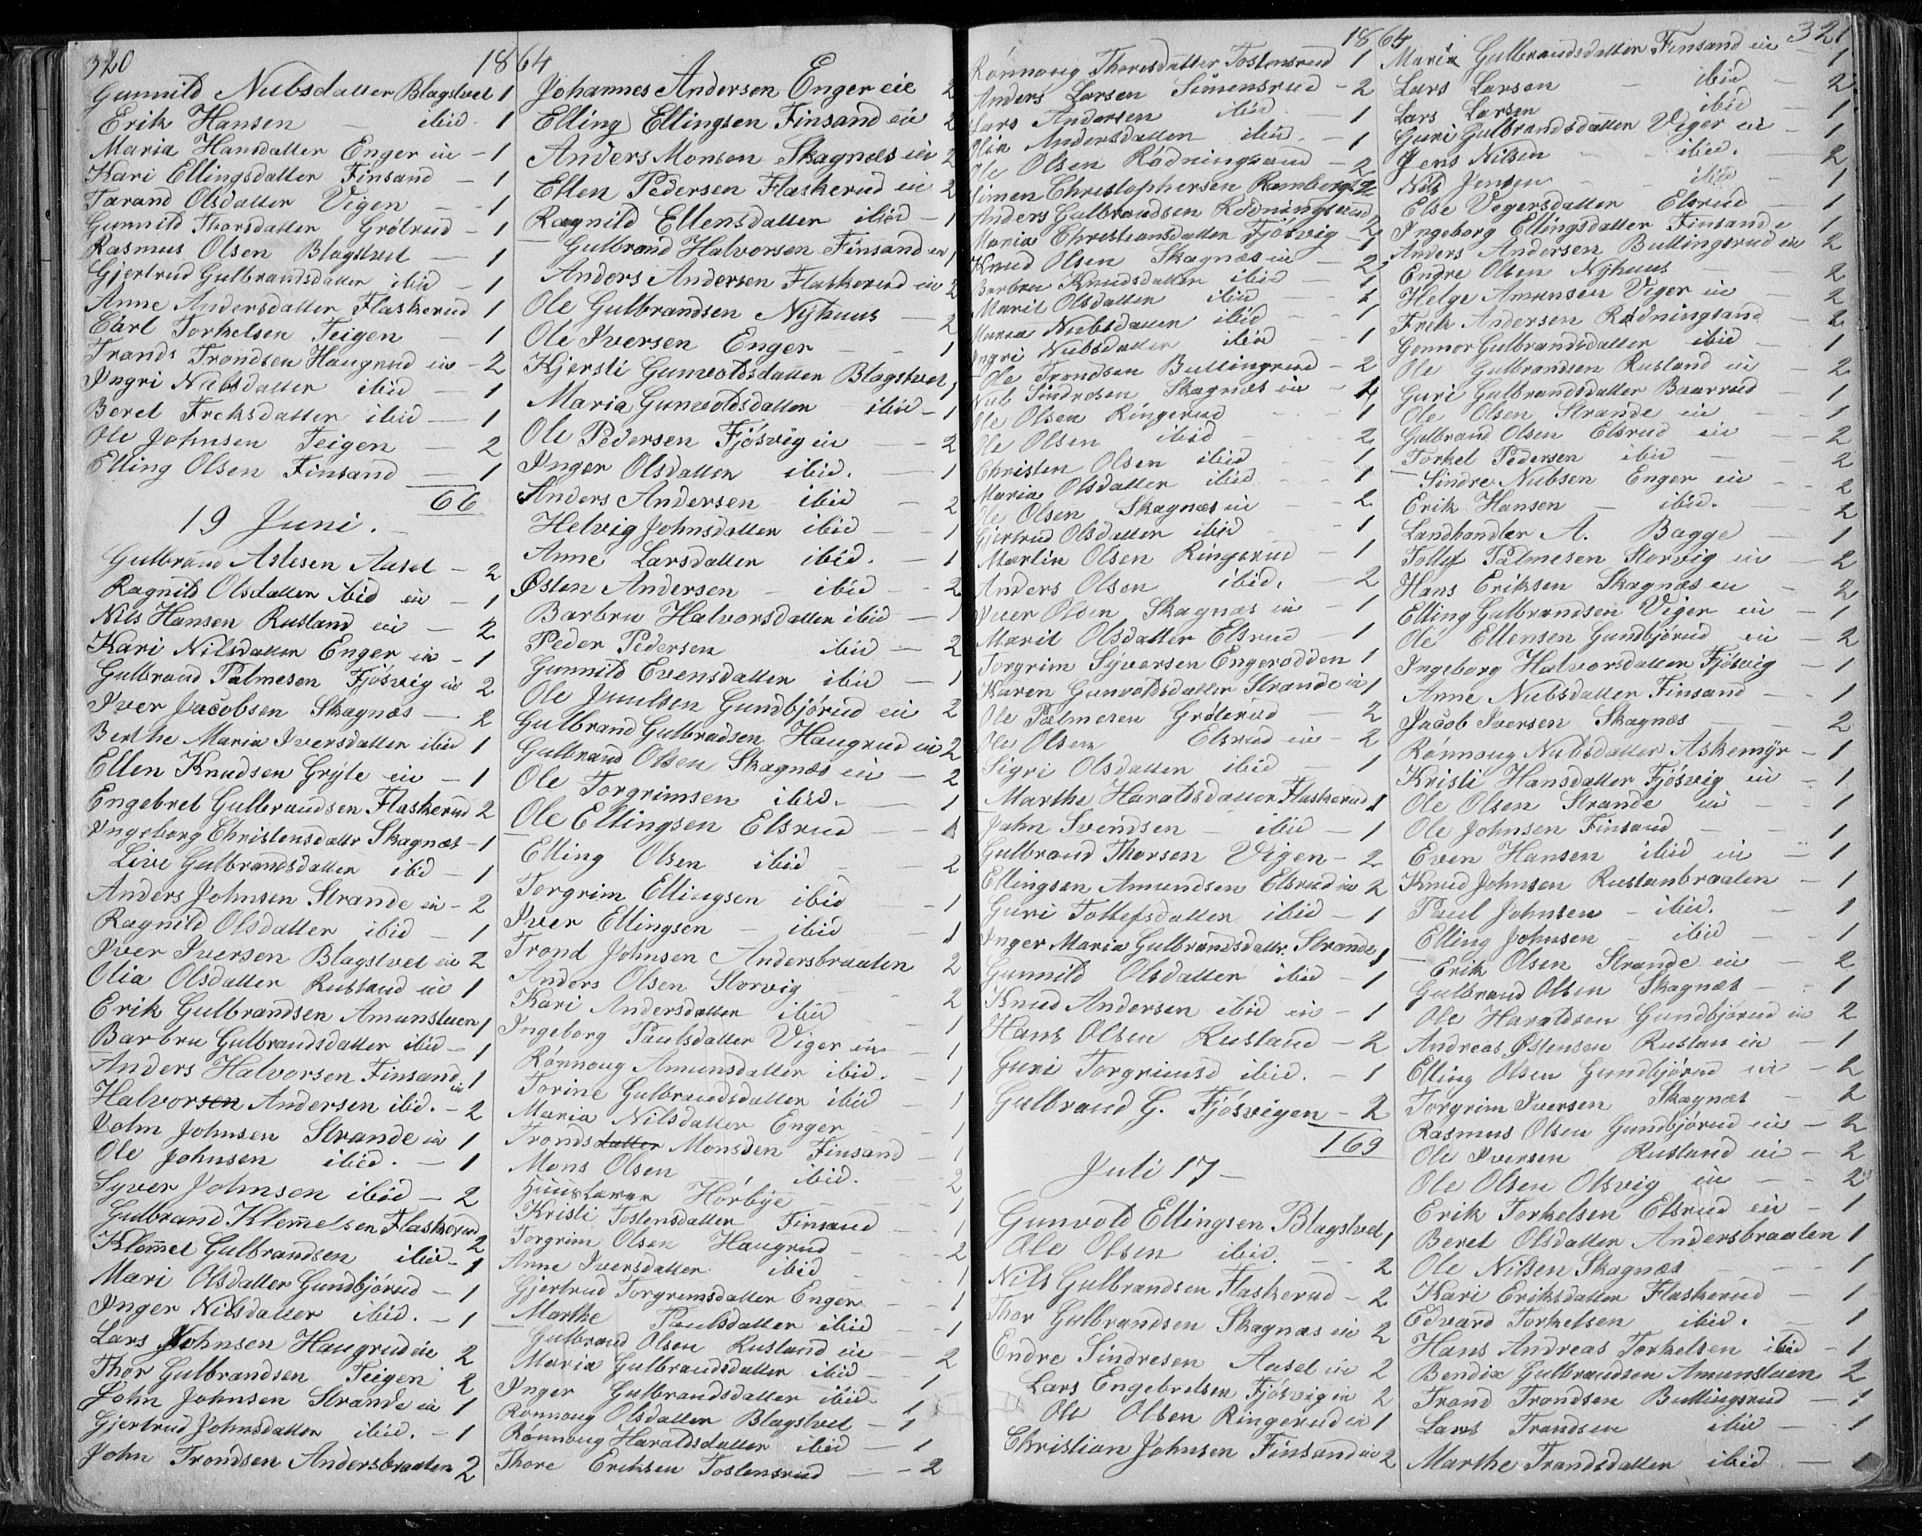 320
1864
Gunnild Nubsdatter Blagstvet 1
Erik Hansen — ibid. 1
Maria Hansdatter Enger eie — 1
Kari Ellingsdatter Finsand — 1
Tarand Olsdatter Vigen — 1
Gunnild Thorsdatter Grötrud — 1
Rasmus Olsen Blagstvet — 1
Gjertrud Gulbrandsdatter ibid — 1
Anne Andersdatter Flaskerud 1
Carl Torkelsen Teigen — 1
Trond Trondsen Haugrud eie — 2
Ingri Nubsdatter ibid — 1
Beret Ericksdatter ibid — 1
Ole Johnsen Teigen — 2
Elling Olsen Finsand — 1
66
19 Juni. —
Gulbrand Aslesen Aasel — 2
Ragnild Olsdatter ibid eie — 1
Nils Hansen Rusland eie — 2
Kari Nilsdatter Enger eie — 1
Gulbrand Palmesen Fjösvig eie 2
Iver Jacobsen Skagnæs — 2
Berthe Maria Iversdatter ibid 1
Ellen Knudsen Gryte eie — 1
Engebret Gulbrandsen Flaskerud 2
Ingeborg Christensdattr Skagnæs — 1
Live Gulbrandsdatter ibid — 1
Anders Johnsen Strande eie — 2
Ragnild Olsdatter ibid — 1
Iver Iversen Blagstvet eie 2
Olia Olsdatter Rusland eie 1
Erik Gulbrandsen Amunstuen 1
Barbru Gulbrandsdatter ibid — 1
Anders Halvorsen Finsand eie 1
Halvorsen Andersen ibid. — 2
John Johnsen Strande eie 1
Ole Johnsen ibid. — 1
Syver Johnsen ibid — 2
Gulbrand Klemmetsen Flaskerud 2
Klemmet Gulbrandsen ibid — 1
Mari Olsdatter Gundbjörud — 1
Inger Nilsdatter ibid. — 1
Lars Johnsen Haugrud eie 2
Thor Gulbrandsen Teigen 2
John Johnsen Strande eie 1
Gjertrud Johnsdatter ibid. — 1
John Trondsen Andersbraaten 2
Johannes Andersen Enger eie 2
Elling Ellingsen Finsand eie 2
Anders Monsen Skagnæs eie 2
Ellen Pedersen Flaskerud eie 2
Ragnild Ellensdatter ibid — 1
Gulbrand Halvorsen Finsand eie 1
Anders Andersen Flaskerud eie 2
Ole Gulbrandsen Nyhuus — 2
Ole Iversen Enger — 1
Kjersti Gunvoldsdatter Blagstvet 1
Maria Gunvoldsdatter ibid — 1
Ole Pedersen Fjösvig eie — 2
Inger Olsdatter ibid. — 1
Anders Andersen ibid — 2
Helvig Johnsdatter ibid — 1
Anne Larsdatter ibid. — 1
Østen Andersen — ibid — 2
Barbru Halvorsdatter ibid — 1
Peder Pedersen ibid — 2
Gunnild Evensdatter ibid — 1
Ole Juulsen Gundbjörud eie 2
Gulbrand Gulbradsen Haugrud eie 2
Gulbrand Olsen Skagnæs eie — 2
Ole Torgrimsen ibid. — 1
Ole Ellingsen Elsrud — 1
Elling Olsen ibid — 2
Torgrim Ellingsen ibid — 1
Iver Ellingsen — ibid — 1
Trond Johnsen Andersbraaten 2
Anders Olsen Storvig — 2
Kari Andersdatter ibid — 1
Ingeborg Paulsdatter Viger eie 1
Rønnoug Amunsdatter ibid. — 1
Torine Gulbrandsdatter ibid — 1
Maria Nilsdatter Enger — 1
Trondsdatter Monsden Finsand — 1
Mons Olsen ibid. 2
Huuslærer Hörbye — 1
Kristi Tostensdatter Finsaud — 1
Torgrim Olsen Haugrud 2
Anne Iversdatter ibid — 1
Gjertrud Torgrimsdatter Enger — 1
Marthe Paulsdatter ibid — 1
Gulbrand Olsen Rusland eie — 2
Maria Gulbrandsdatter ibid — 1
Inger Gulbrandsdatter ibid. 1
Rønnoug Olsdatter Blagstvet — 1
Rønnoug Haraldsdatter ibid — 1
Thore Eriksen Tostensrud — 2
1864
321
Rønnoug Thoresdatter Tostensrud 1
Anders Larsen Simensrud — 2
Lars Andersen ibid — 1
Olia Andersdatter ibid. — 1
Ole Olsen Rödningsand — 2
Simen Christophersen Ramberg 2
Anders Gulbrandsen Rödningsand 2
Maria Christiansdatter Fjösvig — 1
Knud Olsen Skagnæs eie — 2
Barbru Knudsdatter ibid — 1
Marit Olsdatter ibid — 1
Maria Nubsdatter ibid — 1
Ingri Nubsdatter ibid — 1
Ole Trondsen Buttingsrud — 2
Nub Sindresen Skagnæs eie — 1
Ole Olsen Ringerud — 1
Ole Olsen ibid — 2
Christen Olsen ibid — 1
Maria Olsdatter ibid — 1
Ole Olsen Skagnæs eie — 2
Gjertrud Olsdatter ibid — 1
Martin Olsen Ringerud — 1
Anders Olsen ibid. — 2
Iver Olsen Skagnæs eie — 1
Marit Olsdatter Elsrud — 1
Torgrim Syversen Engerodden 1
Karen Gunvoldsdatter Strande eie 1
Ole Palmesen Gröterud — 2
Ole Olsen Elsrud eie — 2
Sigri Olsdatter ibid — 1
Marthe Haraldsdatter Flaskerud 1
John Svendsen — ibid — 1
Gulbrand Thorsen Vigen — 2
Ellingsen Amundsen Elsrud eie 2
Guri Tollefsdatter ibid — 1
Inger Maria Gulbrandsdattr. Strande 1
Gunnild Olsdatter ibid — 1
Knud Andersen ibid eie — 1
Hans Olsen Rusland — 2
Guri Torgrimsd ibid. — 1
Gulbrand G. Fjösvigen — 2
169
Juli 17 —
Gunvold Ellingsen Blagstvet 1
Ole Olsen ibid. — 2
Nils Gulbrandsen Flaskerud — 2
Thor Gulbrandsen Skagnæs eie 2
Endre Sindresen Aasel eie 2
Lars Engebretsen Fjösvig eie 2
Ole Olsen Ringerud eie 1
Christian Johnsen Finsand eie 2
Maria Gulbrandsdatter Finsand eie 1
Lars Larsen — ibid — 2
Lars Larsen ibid — 1
Guri Gulbrandsdatter Viger eie — 1
Jens Nilsen — ibid. 2
Nils Jensen — ibid — 1
Else Vegersdatter Elsrud — 1
Ingeborg Ellingsdatter Finsand e 1
Anders Andersen Buttingsrud eie 2
Endre Olsen Nyhuus — 2
Helge Amunsen Viger eie 2
Erik Andersen Rødningsand — 2
Gonnor Gulbrandsdatter ibid — 1
Ole Gulbrandsen Rusland eie — 2
Guri Gulbrandsdatter Baarrud — 1
Ole Olsen Strande eie — 1
Gulbrand Olsen Elsrud eie — 2
Torkel Pedersen ibid — 2
Sindre Nubsen Enger eie — 2
Erik Hansen — ibid. 2
Landhandler A. Bagge — 1
Tollef Palmesen Storvig eie — 2
Hans Eriksen Skagnæs eie — 2
Elling Gulbrandsen Viger eie — 1
Ole Ellensen Gundbjörud eie — 2
Ingeborg Halvorsdatter Fjösvig — 1
Anne Nubsdatter Finsand — 1
Jacob Iversen Skagnæs — 2
Rønnoug Nubsdatter Askemyr — 1
Kristi Hansdatter Fjösvig eie — 1
Ole Olsen Strande eie — 1
Ole Johnsen Finsand — 1
Even Hansen ibid eie — 1
Knud Johnsen Ruslanbraaten — 1
Paul Johnsen — ibid. — 1
Elling Johnsen — ibid — 1
Erik Olsen Strande eie — 2
Gulbrand Olsen Skagnæs — 1
Ole Haraldsen Gundbjörud eie 2
Andreas Østensen Ruslan eie — 1
Elling Olsen Gundbjörud eie — 2
Torgrim Iversen Skagnæs — 2
Rasmus Olsen Gundbjörud eie — 2
Ole Iversen Rusland eie — 2
Ole Olsen Olsvig eie — 2
Erik Torkelsen Elsrud eie — 1
Beret Olsdatter Andersbraaten 1
Ole Nilsen Skagnæs — 1
Kari Eriksdatter Flaskerud — 1
Edvard Torkelsen ibid. — 1
Hans Andreas Torkelsen ibid — 1
Bendix Gulbrandsen Amunstuen 2
Trond Trondsen Buttingsrud — 1
Lars Trondsen ibid — 1
Marthe Trondsdatter ibid — 1